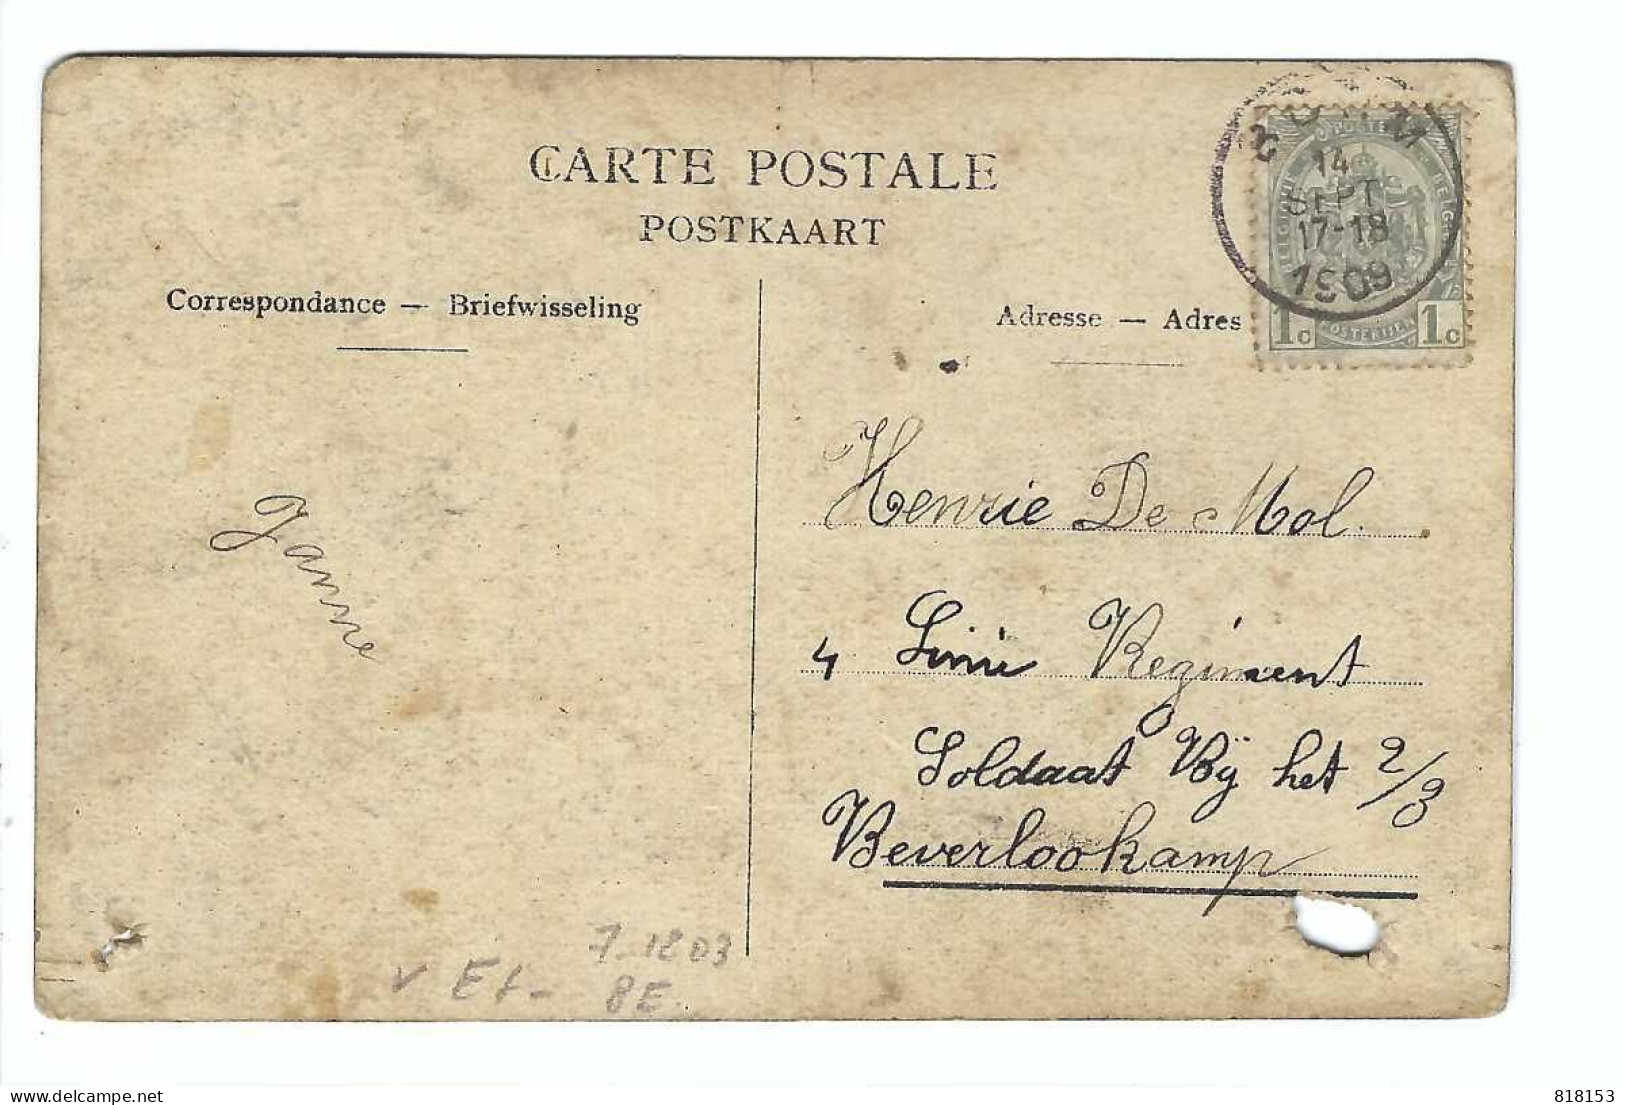 CARTE POSTALE
POSTKAART
Correspondance — Briefwisseling
Adresse — Adres
14
SEPT
17-18
1909
1c 1c
POSTERIJEN
Janne
Henrie De Mol.
4 Linie Regiment
Soldaat Bÿ het 2/3
Beverlookamp
7-1203
v Et- 8E
delcampe.net
818153